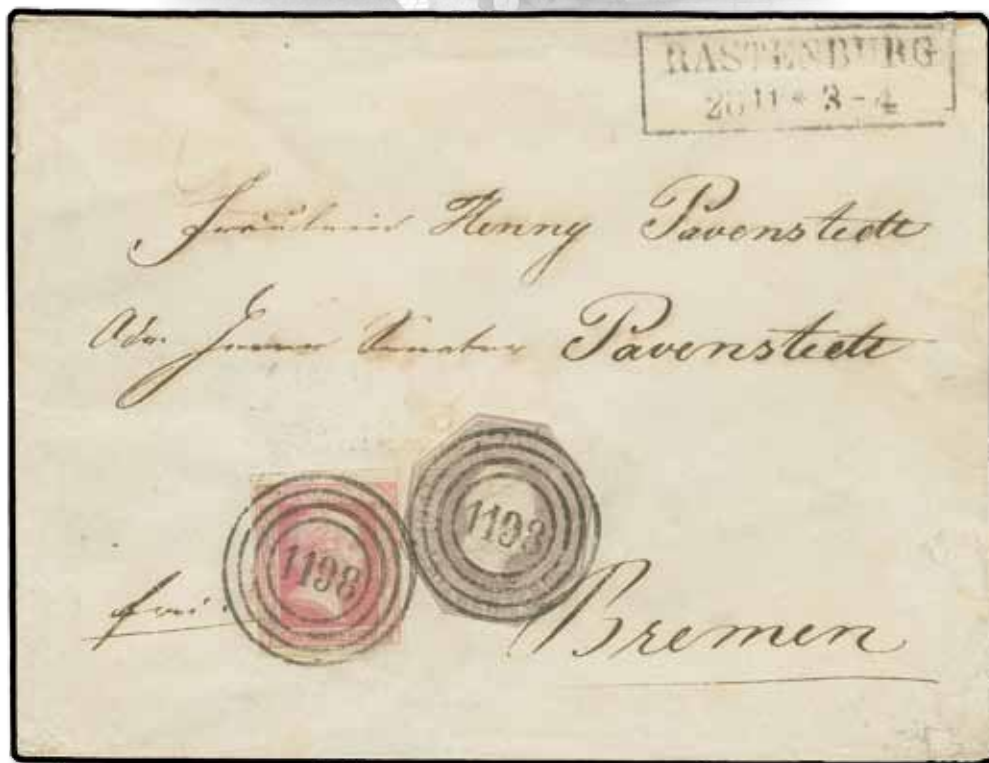 RASTENBURG
26 11 * 3-4
Fräulein Henny Pavenstedt
Adr. Herrn Senator Pavenstedt
1198
1198
frei.
Bremen